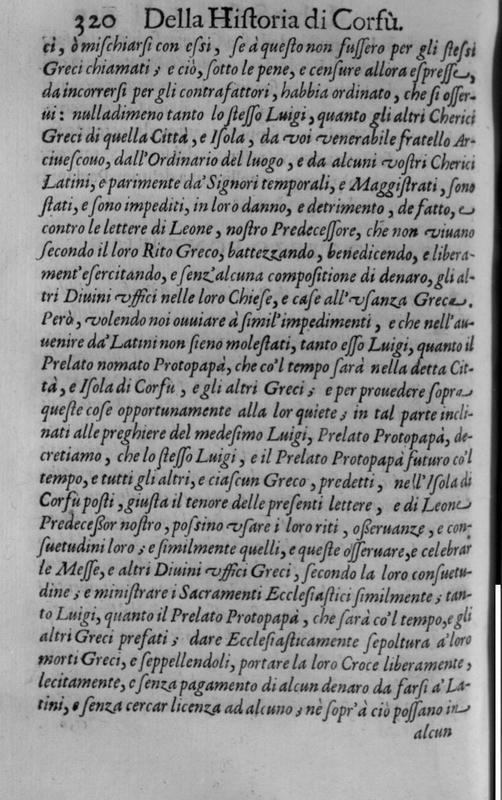 320 Della Historia di Corfù.
ci, ò mischiarsi con essi, se à questo non fussero per gli stessi
Greci chiamati; e ciò, sotto le pene, e censure allora espresse,
da incorrersi per gli contrafattori, habbia ordinato, che si osser-
ui: nulladimeno tanto lo stesso Luigi, quanto gli altri Cherici
Greci di quella Città, e Isola, da voi venerabile fratello Ar-
ciuescouo, dall'Ordinario del luogo, e da alcuni vostri Cherici
Latini, e parimente da' Signori temporali, e Maggistrati, sono
stati, e sono impediti, in loro danno, e detrimento, de fatto, e
contro le lettere di Leone, nostro Predecessore, che non viuano
secondo il loro Rito Greco, battezzando, benedicendo, e libera-
ment'esercitando, e senz'alcuna compositione di denaro, gli al-
tri Diuini vffici nelle loro Chiese, e case all'vsanza Greca.
Però, volendo noi ouuiare à simil'impedimenti, e che nell'au-
uenire da' Latini non sieno molestati, tanto esso Luigi, quanto il
Prelato nomato Protopapà, che co'l tempo sarà nella detta Cit-
tà, e Isola di Corfù, e gli altri Greci; e per prouedere sopra
queste cose opportunamente alla lor quiete; in tal parte incli-
nati alle preghiere del medesimo Luigi, Prelato Protopapà, de-
cretiamo, che lo stesso Luigi, e il Prelato Protopapà futuro co'l
tempo, e tutti gli altri, e ciascun Greco, predetti, nell'Isola di
Corfù posti, giusta il tenore delle presenti lettere, e di Leone
Predecessor nostro, possino vsare i loro riti, osseruanze, e con-
suetudini loro; e similmente quelli, e queste osseruare, e celebrar
le Messe, e altri Diuini vffici Greci, secondo la loro consuetu-
dine; e ministrare i Sacramenti Ecclesiastici similmente; tan-
to Luigi, quanto il Prelato Protopapà, che sarà co'l tempo, e gli
altri Greci prefati; dare Ecclesiasticamente sepoltura a' loro
morti Greci, e seppellendoli, portare la loro Croce liberamente,
lecitamente, e senza pagamento di alcun denaro da farsi a' La-
tini, e senza cercar licenza ad alcuno; nè sopr'à ciò possano in
alcun